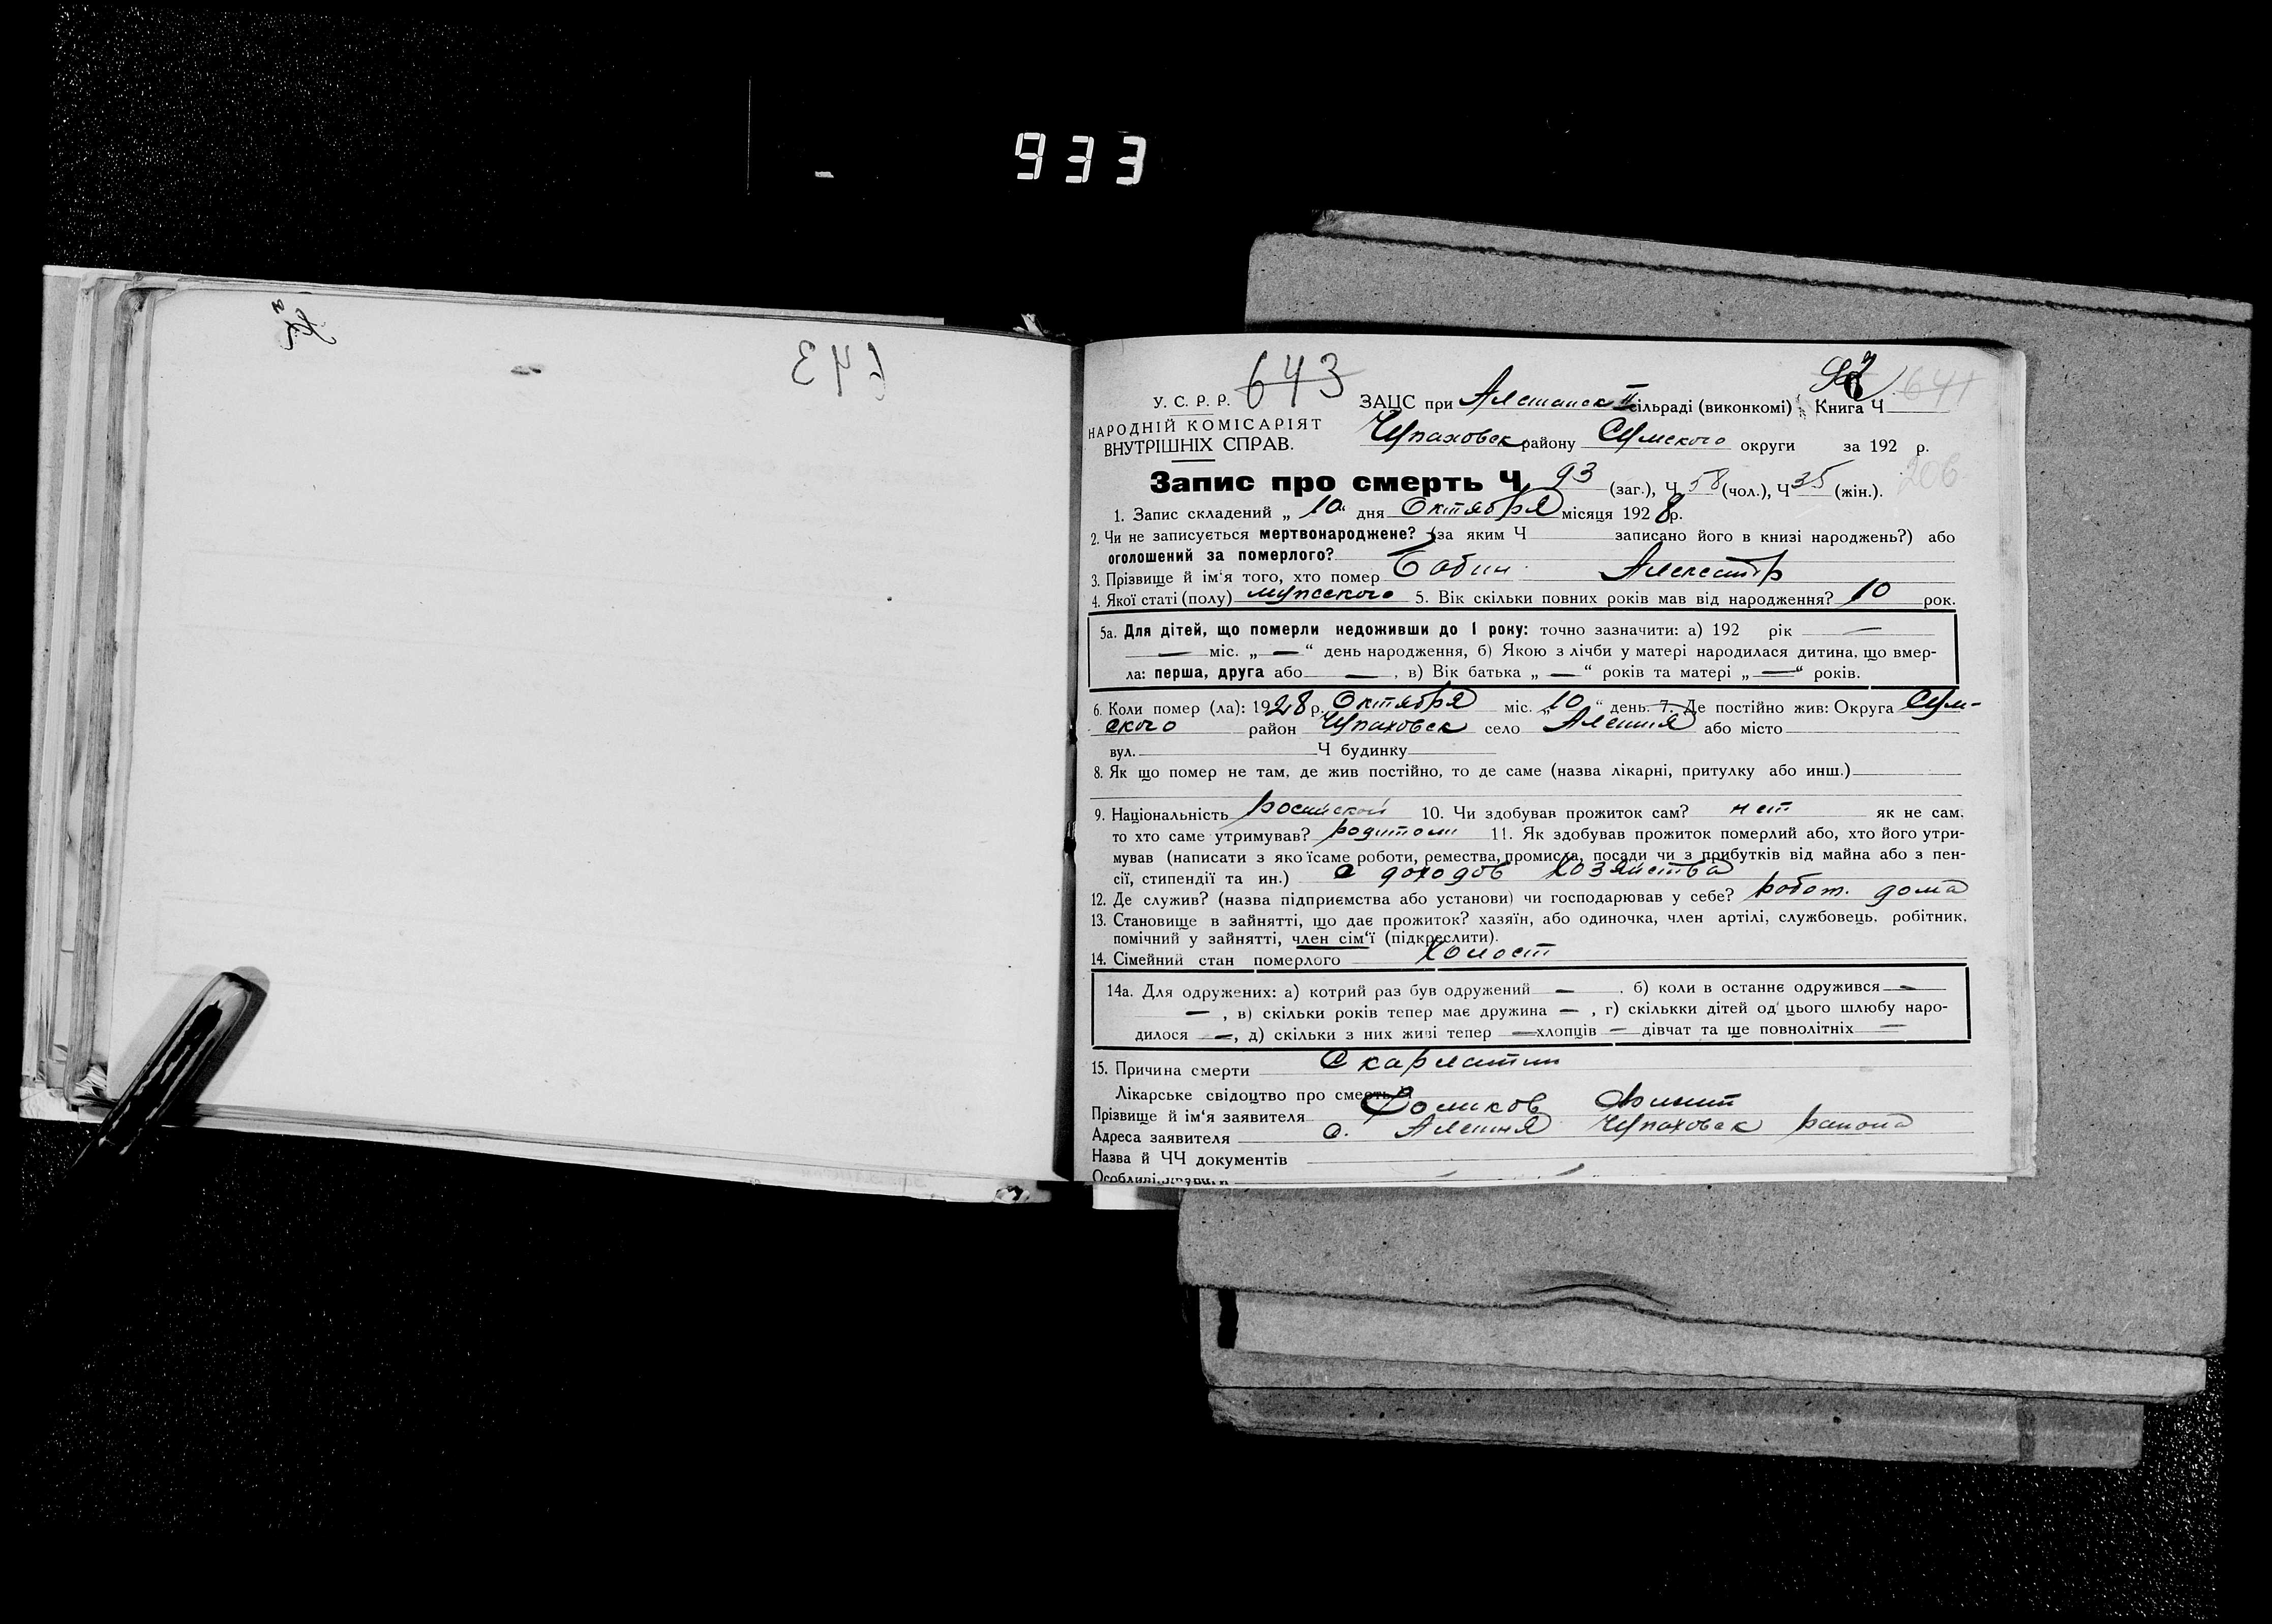 933
643
643
У. С. Р. Р.
НАРОДНІЙ КОМІСАРІЯТ
ВНУТРІШНІХ СПРАВ.
641
ЗАЦС при Алешанск II сільраді (виконкомі) Книга Ч
Чупаховск району Сумского округи за 192 р.
206
Запис про смерть Ч 93 (заг.), Ч 58 (чол.), Ч 35 (жін.).
1. Запис складений „ 10 “ дня Октября місяця 1928 р.
2. Чи не записується мертвонароджене? (за яким Ч записано його в книзі народжень?) або
оголошений за померлого?
3. Прізвище й ім'я того, хто помер Бабин Александр
4. Якої статі (полу) мужского 5. Вік скільки повних років мав від народження? 10 рок.
5а. Для дітей, що померли недоживши до 1 року: точно зазначити: а) 192 рік —
— міс. „ — “ день народження, б) Якою з лічби у матері народилася дитина, що вмер-
ла: перша, друга або — , в) Вік батька „ — “ років та матері „ — “ років.
6. Коли помер (ла): 1928 р. Октября міс. „ 10 “ день. 7. Де постійно жив: Округа Сум-
ского район Чупаховск село Алешня або місто
вул. Ч будинку
8. Як що помер не там, де жив постійно, то де саме (назва лікарні, притулку або инш.)
9. Національність 10. Чи здобував прожиток сам? нет як не сам,
то хто саме утримував? родители 11. Як здобував прожиток померлий або, хто його утри-
мував (написати з якоїсаме роботи, ремества, промисла, посади чи з прибутків від майна або з пен-
сії, стипендії та ин.) с доходов хозяйства
12. Де служив? (назва підприємства або установи) чи господарював у себе? работ. дома
13. Становище в зайнятті, що дає прожиток? хазяїн, або одиночка, член артілі, службовець, робітник,
помічний у зайнятті, член сім'ї (підкреслити).
14. Сімейний стан померлого холост
14а. Для одружених: а) котрий раз був одружений — , б) коли в останнє одружився —
— , в) скільки років тепер має дружина — , г) скількки дітей од' цього шлюбу наро-
дилося — , д) скільки з них живі тепер — хлопців — дівчат та ще повнолітніх —
15. Причина смерти Скарлатин
Лікарське свідоцтво про смерть
Прізвище й ім'я заявителя
Адреса заявителя с. Алешня Чупаховск района
Назва й ЧЧ документів